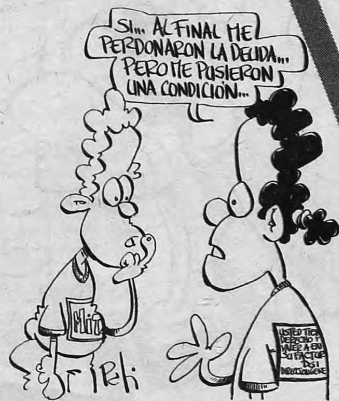 SI... AL FINAL ME
PERDONARON LA DEUDA...
PERO ME PUSIERON
UNA CONDICIÓN...
USTED TIENE
DERECHO A
SU FACTURA
DGI